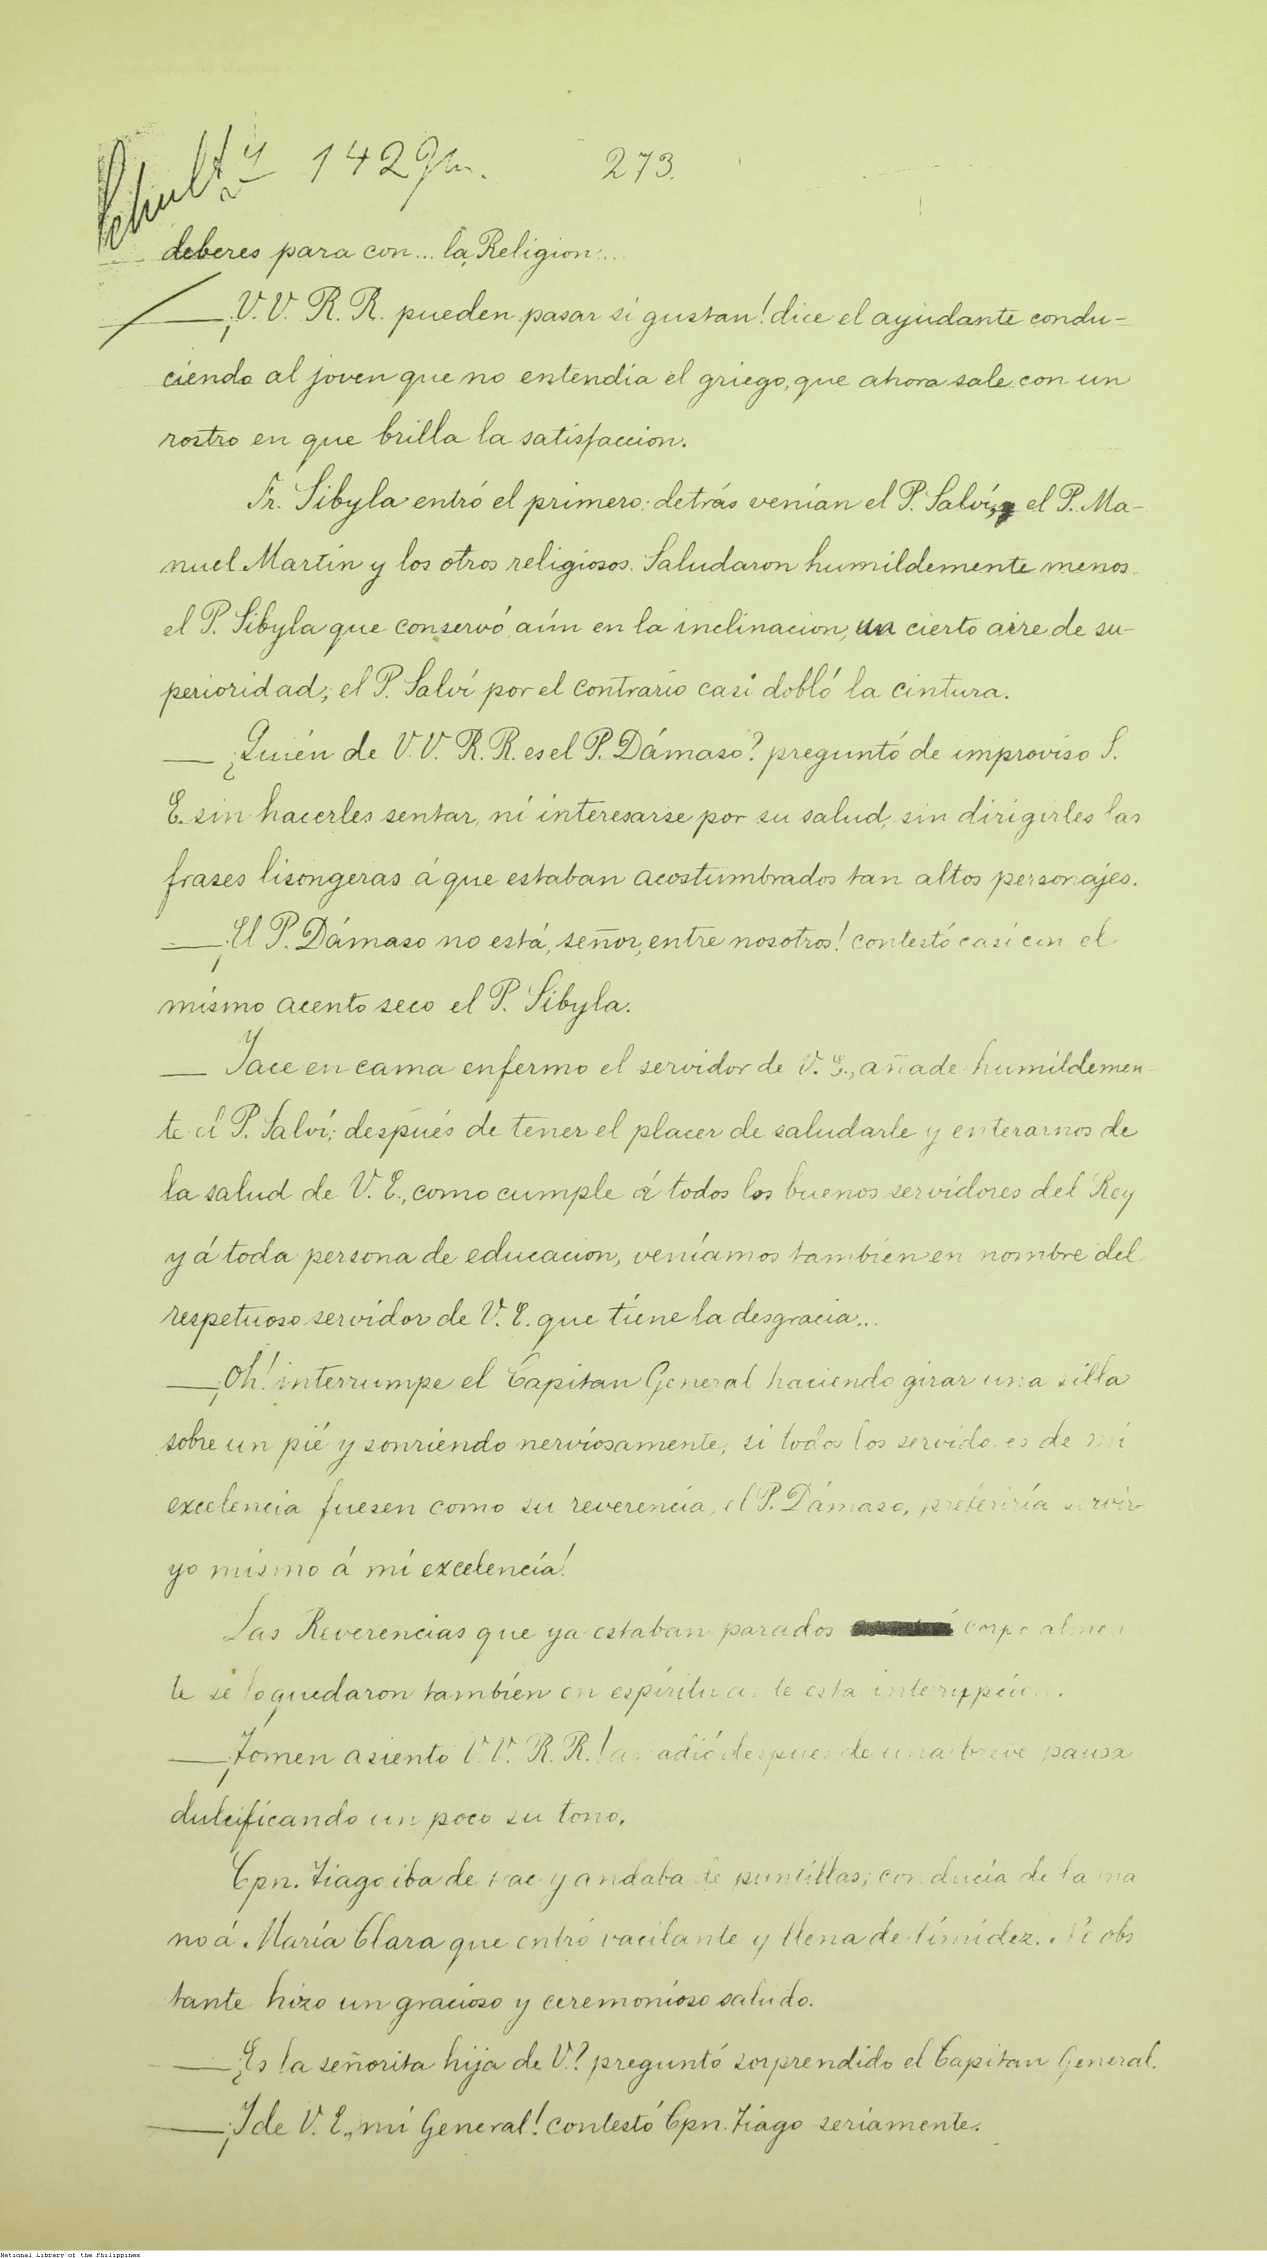 Schultz 142 Gm. 273.
deberes para con... la Religion...
— ¡V.V. R.R. pueden pasar si gustan! dice el ayudante condu-
ciendo al joven que no entendia el griego, que ahora sale con un
rostro en que brilla la satisfaccion.
Fr. Sibyla entró el primero: detrás venían el P. Salví, el P. Ma-
nuel Martin y los otros religiosos. Saludaron humildemente menos
el P. Sibyla que conservó aún en la inclinacion, un cierto aire de su-
perioridad; el P. Salví por el contrario casi dobló la cintura.
— ¿Quién de V.V. R.R. es el P. Dámaso? preguntó de improviso S.
E. sin hacerles sentar, ni interesarse por su salud, sin dirigirles las
frases lisongeras á que estaban acostumbrados tan altos personajes.
— ¡El P. Dámaso no está, señor, entre nosotros! contestó casi con el
mismo acento seco el P. Sibyla.
— Yace en cama enfermo el servidor de V. E., añade humildemen-
te el P. Salví; después de tener el placer de saludarle y enterarnos de
la salud de V. E., como cumple á todos los buenos servidores del Rey
y á toda persona de educacion, veníamos tambien en nombre del
respetuoso servidor de V. E. que tiene la desgracia...
— ¡Oh! interrumpe el Capitan General haciendo girar una silla
sobre un pié y sonriendo nerviosamente, si todos los servidores de mi
excelencia fuesen como su reverencia, el P. Dámaso, preferiría servir
yo mismo á mi excelencia!
Las Reverencias que ya estaban parados corporalmen
te se lo quedaron también en espíritu ante esta interrupción.
— ¡Tomen asiento V.V. R.R.! añadió despues de una breve pausa
dulcificando un poco su tono.
Cpn. Tiago iba de frac y andaba de puntillas; conducía de la ma
no á María Clara que entró vacilante y llena de timidez. No obs
tante hizo un gracioso y ceremonioso saludo.
— ¿Es la señorita hija de V.? preguntó sorprendido el Capitan General.
— ¡Y de V. E., mi General! contestó Cpn. Tiago seriamente.
National Library of the Philippines